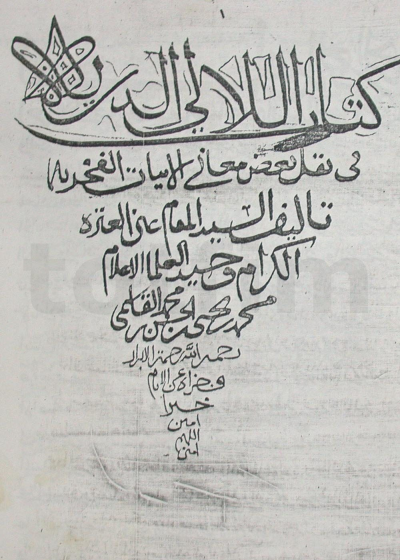 كتاب اللالي الدرية
في نقل بعض معاني الابيات الفخرية
تاليف السيد المقام عز العترة
الكرام وحيد العلما الاعلام
محمد بن يحيى بن الحسن بن محمد القاسمي
رحمه الله رحمة الابرار
وجزاه عن الانام
خيرا
امين
اللهم
امين